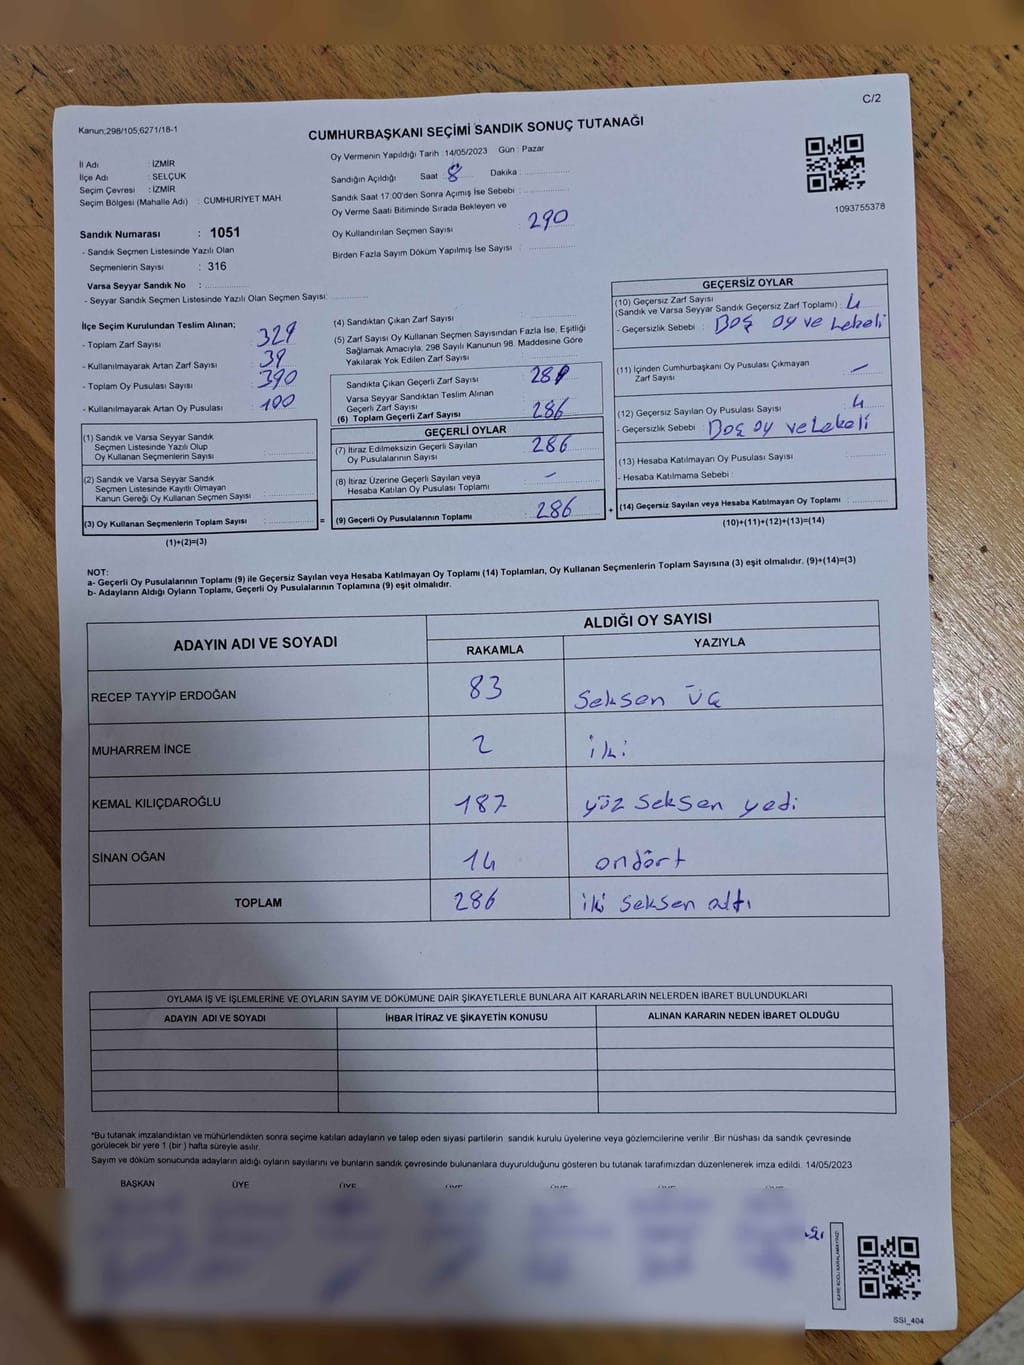 C/2
Kanun;298/105,6271/18-1
CUMHURBAŞKANI SEÇİMİ SANDIK SONUÇ TUTANAĞI
İl Adı : İZMİR
İlçe Adı : SELÇUK
Seçim Çevresi : İZMİR
Seçim Bölgesi (Mahalle Adı) : CUMHURİYET MAH.
Sandık Numarası : 1051
- Sandık Seçmen Listesinde Yazılı Olan
Seçmenlerin Sayısı : 316
Varsa Seyyar Sandık No :
- Seyyar Sandık Seçmen Listesinde Yazılı Olan Seçmen Sayısı:
Oy Vermenin Yapıldığı Tarih :14/05/2023 Gün : Pazar
Sandığın Açıldığı Saat 8 Dakika :
Sandık Saat 17:00'den Sonra Açımış İse Sebebi :
Oy Verme Saati Bitiminde Sırada Bekleyen ve
Oy Kullandırılan Seçmen Sayısı : 290
Birden Fazla Sayım Döküm Yapılmış İse Sayısı :
1093755378
İlçe Seçim Kurulundan Teslim Alınan;
- Toplam Zarf Sayısı : 329
- Kullanılmayarak Artan Zarf Sayısı : 39
- Toplam Oy Pusulası Sayısı : 390
- Kullanılmayarak Artan Oy Pusulası : 100
(1) Sandık ve Varsa Seyyar Sandık
Seçmen Listesinde Yazılı Olup
Oy Kullanan Seçmenlerin Sayısı :
(2) Sandık ve Varsa Seyyar Sandık
Seçmen Listesinde Kayıtlı Olmayan
Kanun Gereği Oy Kullanan Seçmen Sayısı :
(3) Oy Kullanan Seçmenlerin Toplam Sayısı :
(1)+(2)=(3)
(4) Sandıktan Çıkan Zarf Sayısı :
(5) Zarf Sayısı Oy Kullanan Seçmen Sayısından Fazla İse, Eşitliği
Sağlamak Amacıyla; 298 Sayılı Kanunun 98. Maddesine Göre
Yakılarak Yok Edilen Zarf Sayısı :
Sandıkta Çıkan Geçerli Zarf Sayısı :
Varsa Seyyar Sandıktan Teslim Alınan
Geçerli Zarf Sayısı :
(6) Toplam Geçerli Zarf Sayısı : 286
GEÇERLİ OYLAR
(7) İtiraz Edilmeksizin Geçerli Sayılan : 286
Oy Pusulalarının Sayısı
(8) İtiraz Üzerine Geçerli Sayılan veya : -
Hesaba Katılan Oy Pusulası Toplamı
= (9) Geçerli Oy Pusulalarının Toplamı : 286 +
GEÇERSİZ OYLAR
(10) Geçersiz Zarf Sayısı
(Sandık ve Varsa Seyyar Sandık Geçersiz Zarf Toplamı) : 4
- Geçersizlik Sebebi : Boş oy ve Lekeli
(11) İçinden Cumhurbaşkanı Oy Pusulası Çıkmayan : -
Zarf Sayısı
(12) Geçersiz Sayılan Oy Pusulası Sayısı : 4
- Geçersizlik Sebebi : Boş oy ve Lekeli
(13) Hesaba Katılmayan Oy Pusulası Sayısı :
- Hesaba Katılmama Sebebi :
(14) Geçersiz Sayılan veya Hesaba Katılmayan Oy Toplamı :
(10)+(11)+(12)+(13)=(14)
NOT:
a- Geçerli Oy Pusulalarının Toplamı (9) ile Geçersiz Sayılan veya Hesaba Katılmayan Oy Toplamı (14) Toplamları, Oy Kullanan Seçmenlerin Toplam Sayısına (3) eşit olmalıdır. (9)+(14)=(3)
b- Adayların Aldığı Oyların Toplamı, Geçerli Oy Pusulalarının Toplamına (9) eşit olmalıdır.
ADAYIN ADI VE SOYADI ALDIĞI OY SAYISI
RAKAMLA YAZIYLA
RECEP TAYYİP ERDOĞAN 83 Seksen üç
MUHARREM İNCE 2 iki
KEMAL KILIÇDAROĞLU 187 yüz seksen yedi
SİNAN OĞAN 14 ondört
TOPLAM 286 iki seksen altı
OYLAMA İŞ VE İŞLEMLERİNE VE OYLARIN SAYIM VE DÖKÜMÜNE DAİR ŞİKAYETLERLE BUNLARA AİT KARARLARIN NELERDEN İBARET BULUNDUKLARI
ADAYIN ADI VE SOYADI İHBAR İTİRAZ VE ŞİKAYETİN KONUSU ALINAN KARARIN NEDEN İBARET OLDUĞU
*Bu tutanak imzalandıktan ve mühürlendikten sonra seçime katılan adayların ve talep eden siyasi partilerin sandık kurulu üyelerine veya gözlemcilerine verilir. Bir nüshası da sandık çevresinde
görülecek bir yere 1 (bir) hafta süreyle asılır.
Sayım ve döküm sonucunda adayların aldığı oyların sayılarını ve bunların sandık çevresinde bulunanlara duyurulduğunu gösteren bu tutanak tarafımızdan düzenlenerek imza edildi. 14/05/2023
BAŞKAN ÜYE ÜYE ÜYE ÜYE ÜYE ÜYE
SSI_404